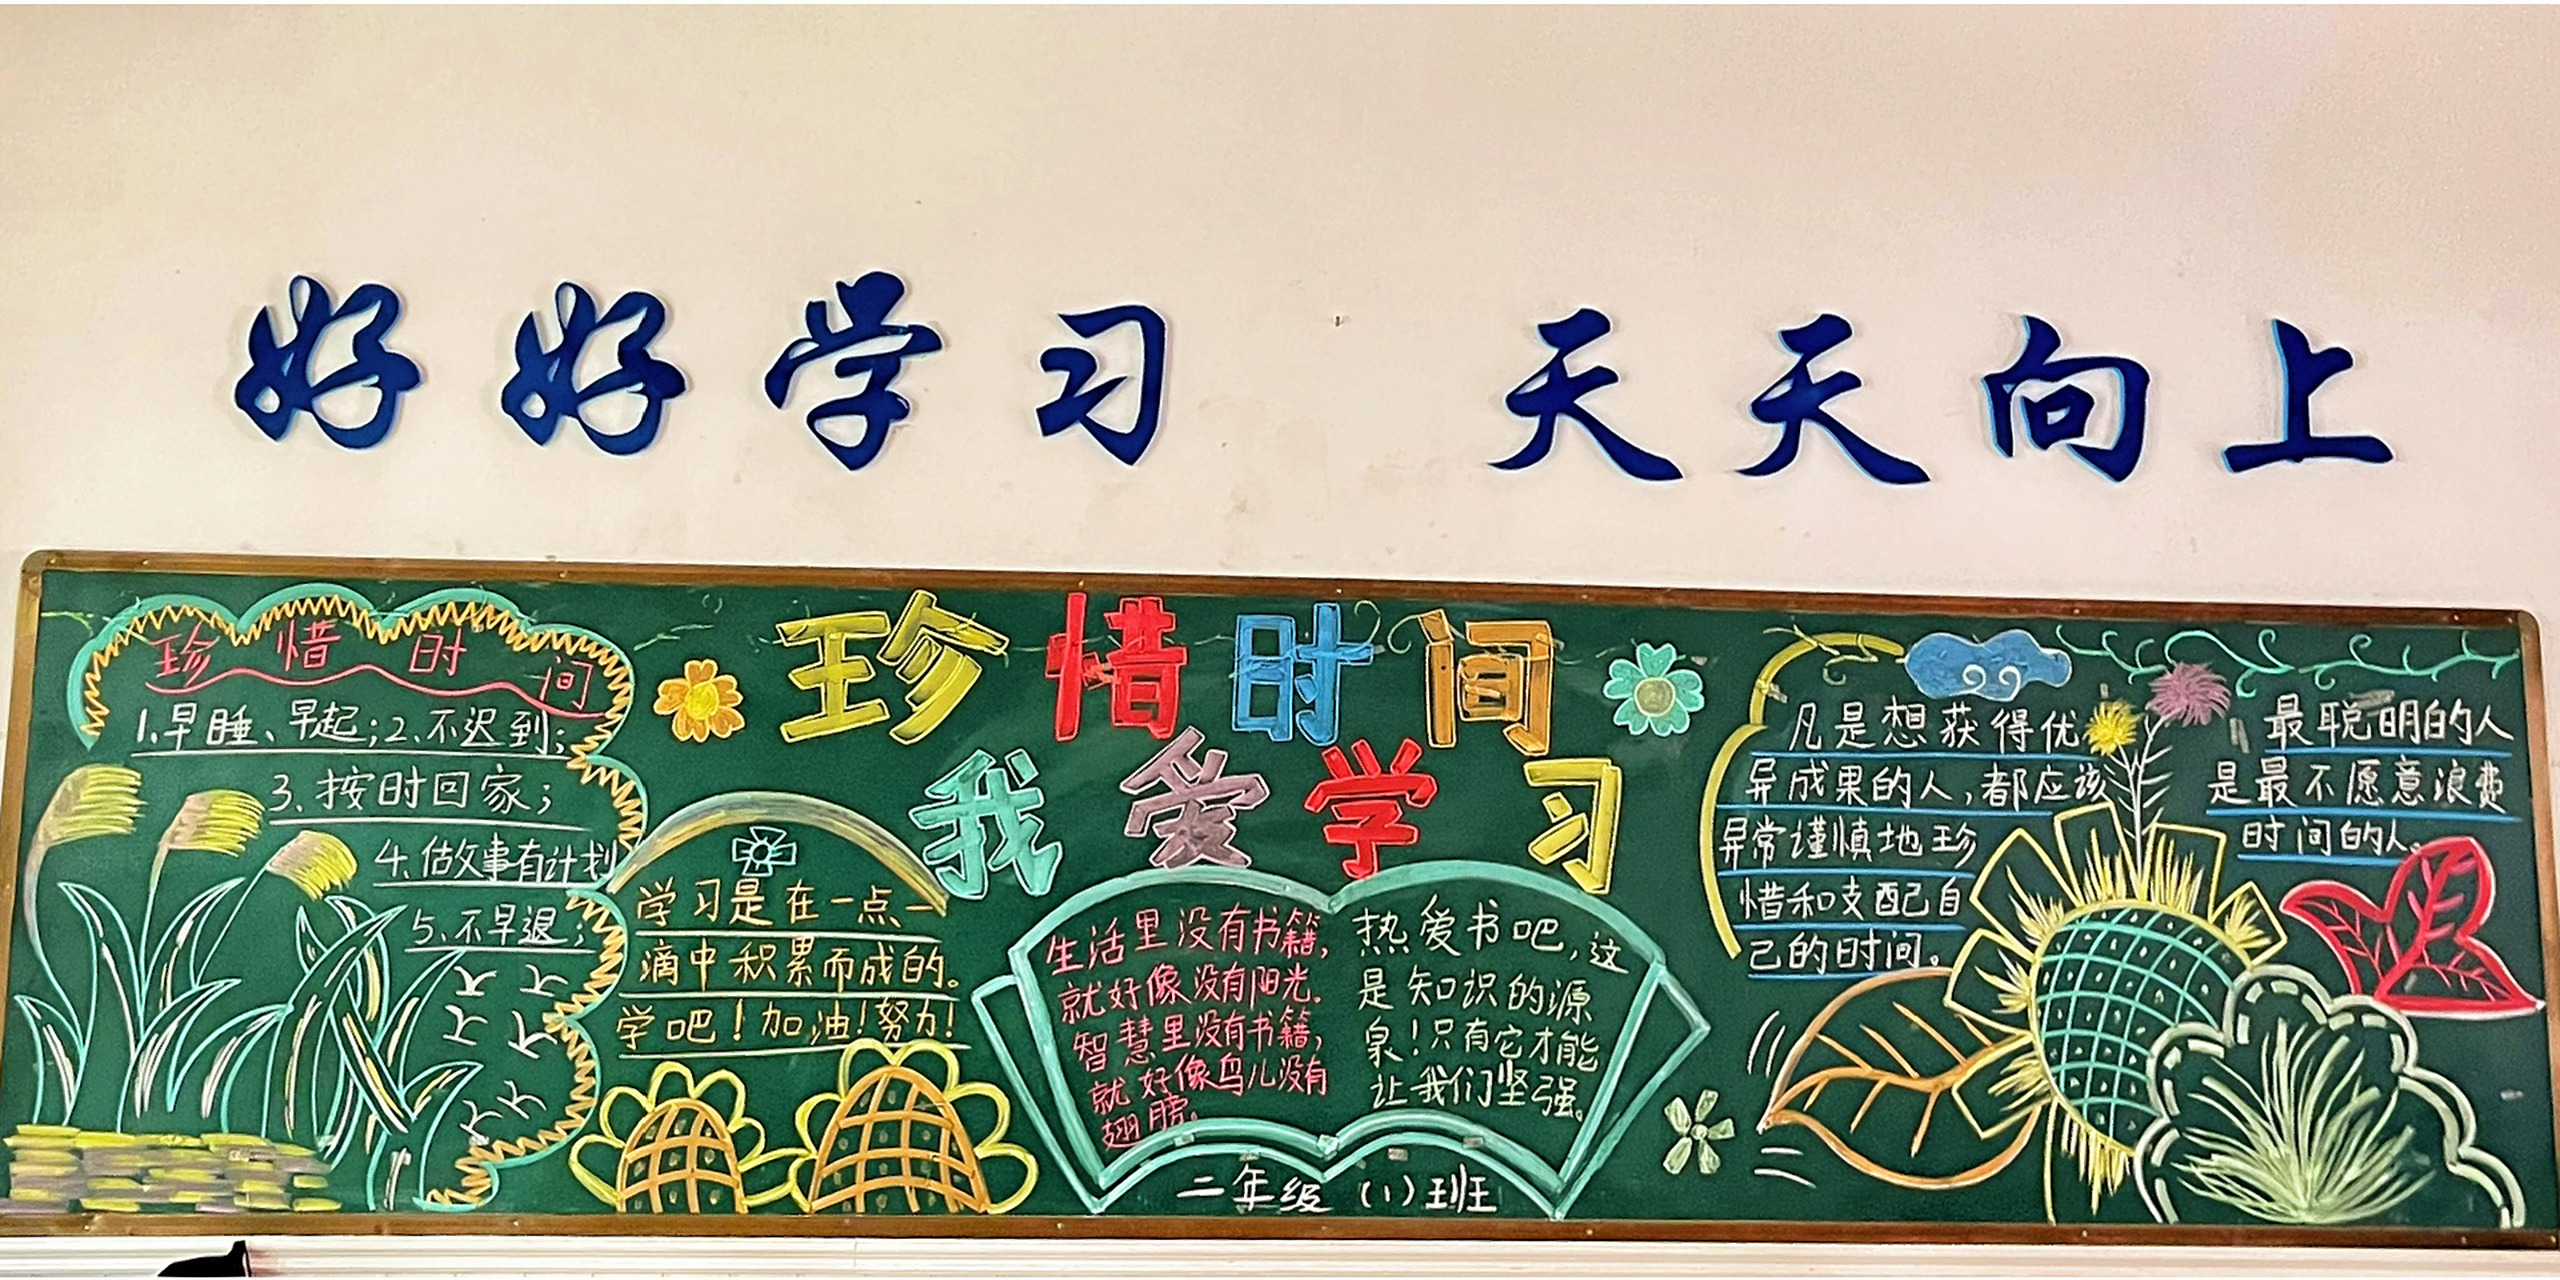 好好学习 天天向上
珍惜时间
我爱学习
珍惜时间
1.早睡、早起;2.不迟到;
3.按时回家;
4.做事有计划
5.不早退;
学习是在一点一
滴中积累而成的。
学吧!加油!努力!
生活里没有书籍,
就好像没有阳光.
智慧里没有书籍,
就好像鸟儿没有
翅膀。
热爱书吧,这
是知识的源
泉!只有它才能
让我们坚强。
二年级(1)班
凡是想获得优
异成果的人,都应该
异常谨慎地珍
惜和支配己自
己的时间。
最聪明的人
是最不愿意浪费
时间的人。